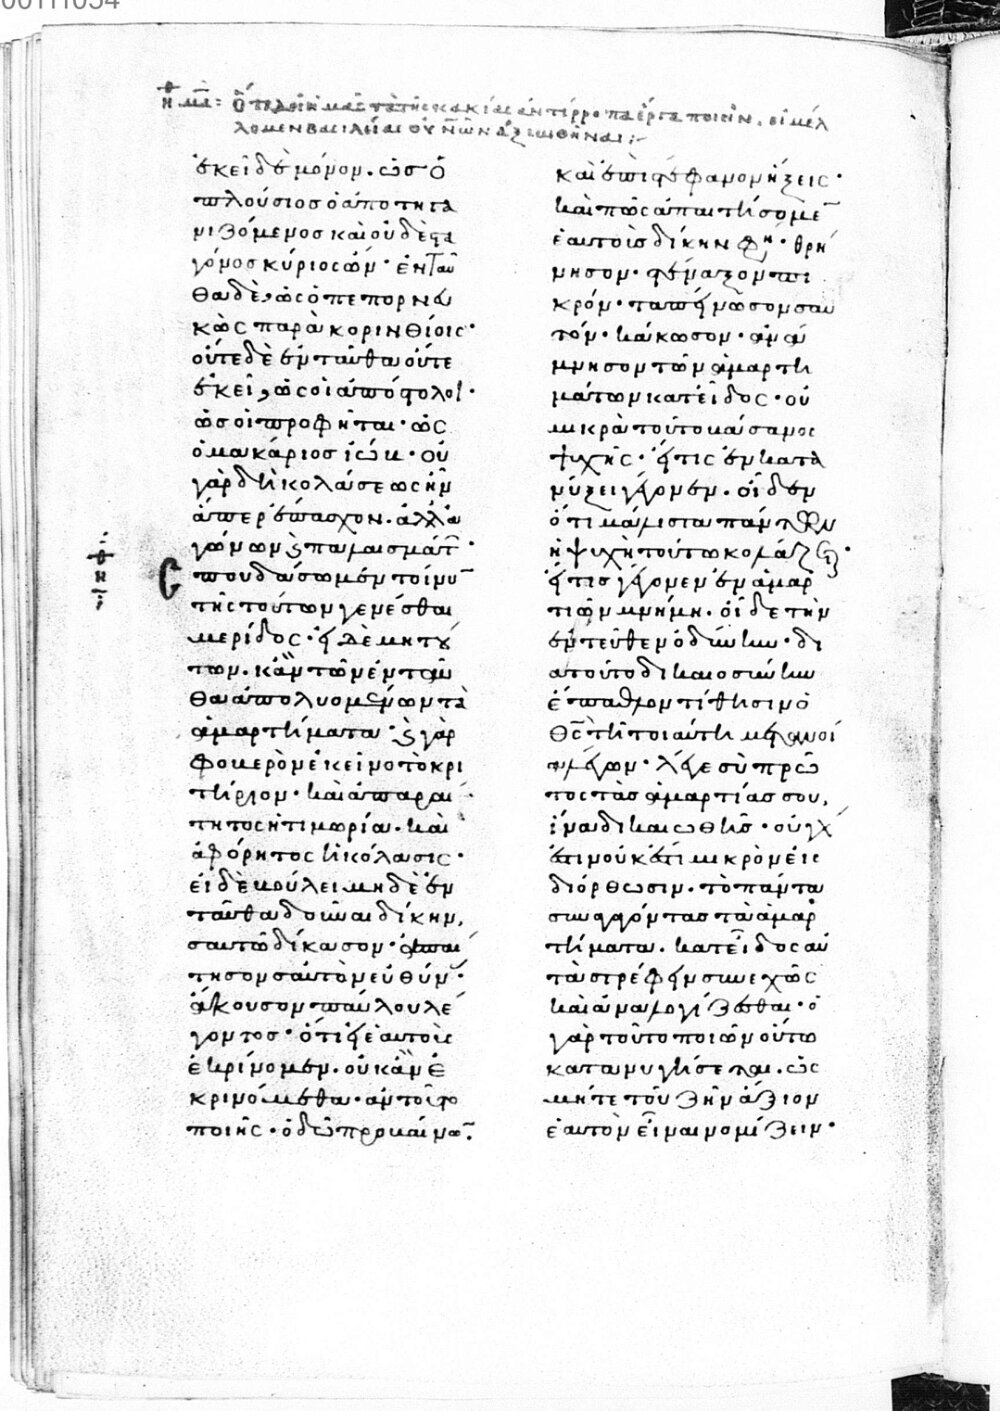 00111034
ἠθι μα: Ὅτι δεῖ ἡμᾶς τὰ τῆς κακίας ἀντίρροπα ἔργα ποιεῖν, εἰ μέλ
λομεν βασιλείας οὐνῶν ἀξιωθῆναι:
ἐκεῖ δὲ μόνον. ὡσ ὁ
πλούσιοσ ὁ ἀποτηγα
νιζόμενοσ καὶ οὐδὲ στα
γόνοσ κύριοσ ὤν· ἐνταῦ
θα δὲ, ὡς ὁ πεπορνευ
κὼς παρὰ κορινθίοις·
οὔτε δὲ ἐνταῦθα οὔτε
ἐκεῖ, ὡς οἱ ἀπόστολοι·
ὡσ οἱ προφῆται· ὡς
ὁ μακάριοσ ἰώβ· οὐ
γὰρ δὴ κολάσεως ἦν
ἅπερ ἔπασχον. ἀλλ' ἀ
γώνων καὶ παλαισμάτ
Σπουδάσωμεν τοίνυ
τῆς τούτων γενέσθαι
μερίδος· εἰ δὲ μὴ τού
των. κἂν τῶν ἐνταῦ
θα ἀπολυομένων τὰ
ἁμαρτήματα· καὶ γὰρ
φοβερὸν ἐκεῖνο τὸ κρι
τήριον· καὶ ἀπαραί
τητος ἡ τιμωρία. καὶ
ἀφόρητος ἡ κόλασις·
εἰ δὲ βούλει μηδὲ ἐν
ταῦθα δοῦναι δίκην,
σαυτῶ δίκασον· ἀπαί
τησον σαυτὸν εὐθύν
ἄκουσον παύλου λέ
γοντοσ· ὅτι εἰ ἑαυτοὺς
ἐκρίνομεν. οὐκ ἂν ἐ
κρινόμεθα. ἂν τοῦτο
ποιῆς· ὁδῶ προβαίνω
καὶ ἐπὶ στέφανον ἥξεις·
καὶ πῶς ἀπαιτήσομε
ἑαυτοὺς δίκην φη· θρή
νησον· στέναξον πι
κρόν· ταπείνωσον σαυ
τόν· κάκωσον· ἀνά
μνησον τῶν ἁμαρτη
μάτων κατ' εἶδος· οὐ
μικρὰ τοῦτο βάσανος
ψυχῆς· εἴ τις ἐν κατα
νύξει γέγονεν. οἶδεν
ὅτι μάλιστα πάντων
ἡ ψυχὴ τούτω κολάζεται·
εἴ τισ γέγονεν ἐν ἁμαρ
τιῶν μνήμη. οἶδε τὴν
ἐντεῦθεν ὀδύνην· δι
ὰ τοῦτο δικαιοσύνην
ἔπαθλον τίθησιν ὁ
θς τῆ τοιαύτη μετανοί
α λέγων· λέγε σὺ πρῶ
τος τὰσ ἁμαρτίασ σου,
ἵνα δικαιωθῆς· οὐ γὰρ
ἔστιν οὐκ ἔστι μικρὸν εἰς
διόρθωσιν. τὸ πάντα
συναγαγόντας τὰ ἁμαρ
τήματα. κατ' εἶδος αὐ
τὰ στρέφειν συνεχῶς
καὶ ἀναλογίζεσθαι· ὁ
γὰρ τοῦτο ποιῶν οὕτω
κατανυγήσεται. ὡς
μήτε τοῦ ζῆν ἄξιον
ἑαυτὸν εἶναι νομίζειν·